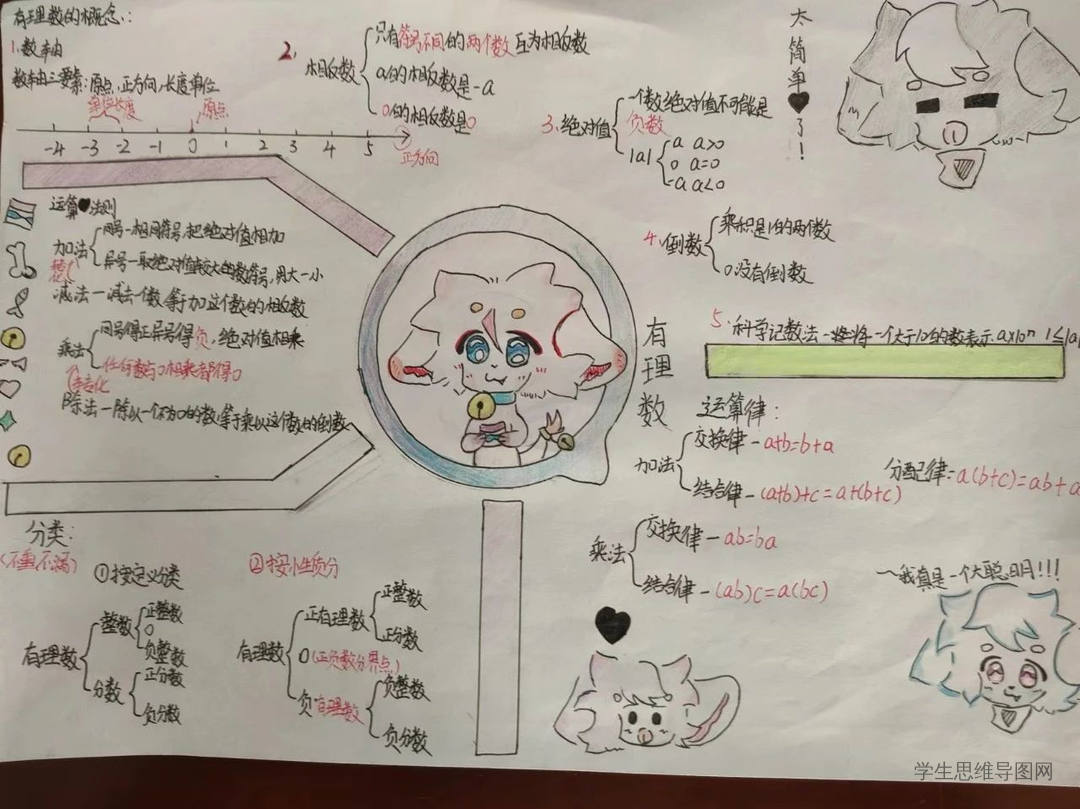 有理数的概念:
1.数轴
数轴三要素:原点,正方向,长度单位
单位长度
原点
-4 -3 -2 -1 0 1 2 3 4 5
正方向
2.
相反数
只有符号不同的两个数互为相反数
a的相反数是-a
0的相反数是0
3.绝对值
一个数绝对值不可能是
负数
|a|
a a>0
0 a=0
-a a<0
太简单了!
运算法则
加法
同号-相同符号,把绝对值相加
异号-取绝对值较大的数符号,用大-小
减法-减去一个数,等于加这个数的相反数
乘法
同号得正异号得负,绝对值相乘
任何数与0相乘都得0
转化
除法-除以一个不为0的数,等于乘以这个数的倒数
4.倒数
乘积是1的两个数
0没有倒数
有理数
5.科学记数法-将一个大于10的数表示a×10ⁿ 1≤|a|
运算律:
加法
交换律-a+b=b+a
结合律-(a+b)+c=a+(b+c)
分配律:a(b+c)=ab+a
乘法
交换律-ab=ba
结合律-(ab)c=a(bc)
分类:
(不重不漏)
①按定义分类
有理数
整数
正整数
0
负整数
分数
正分数
负分数
②按性质分
有理数
正有理数
正整数
正分数
0(正负数分界点)
负有理数
负整数
负分数
~我真是一个大聪明!!!
学生思维导图网